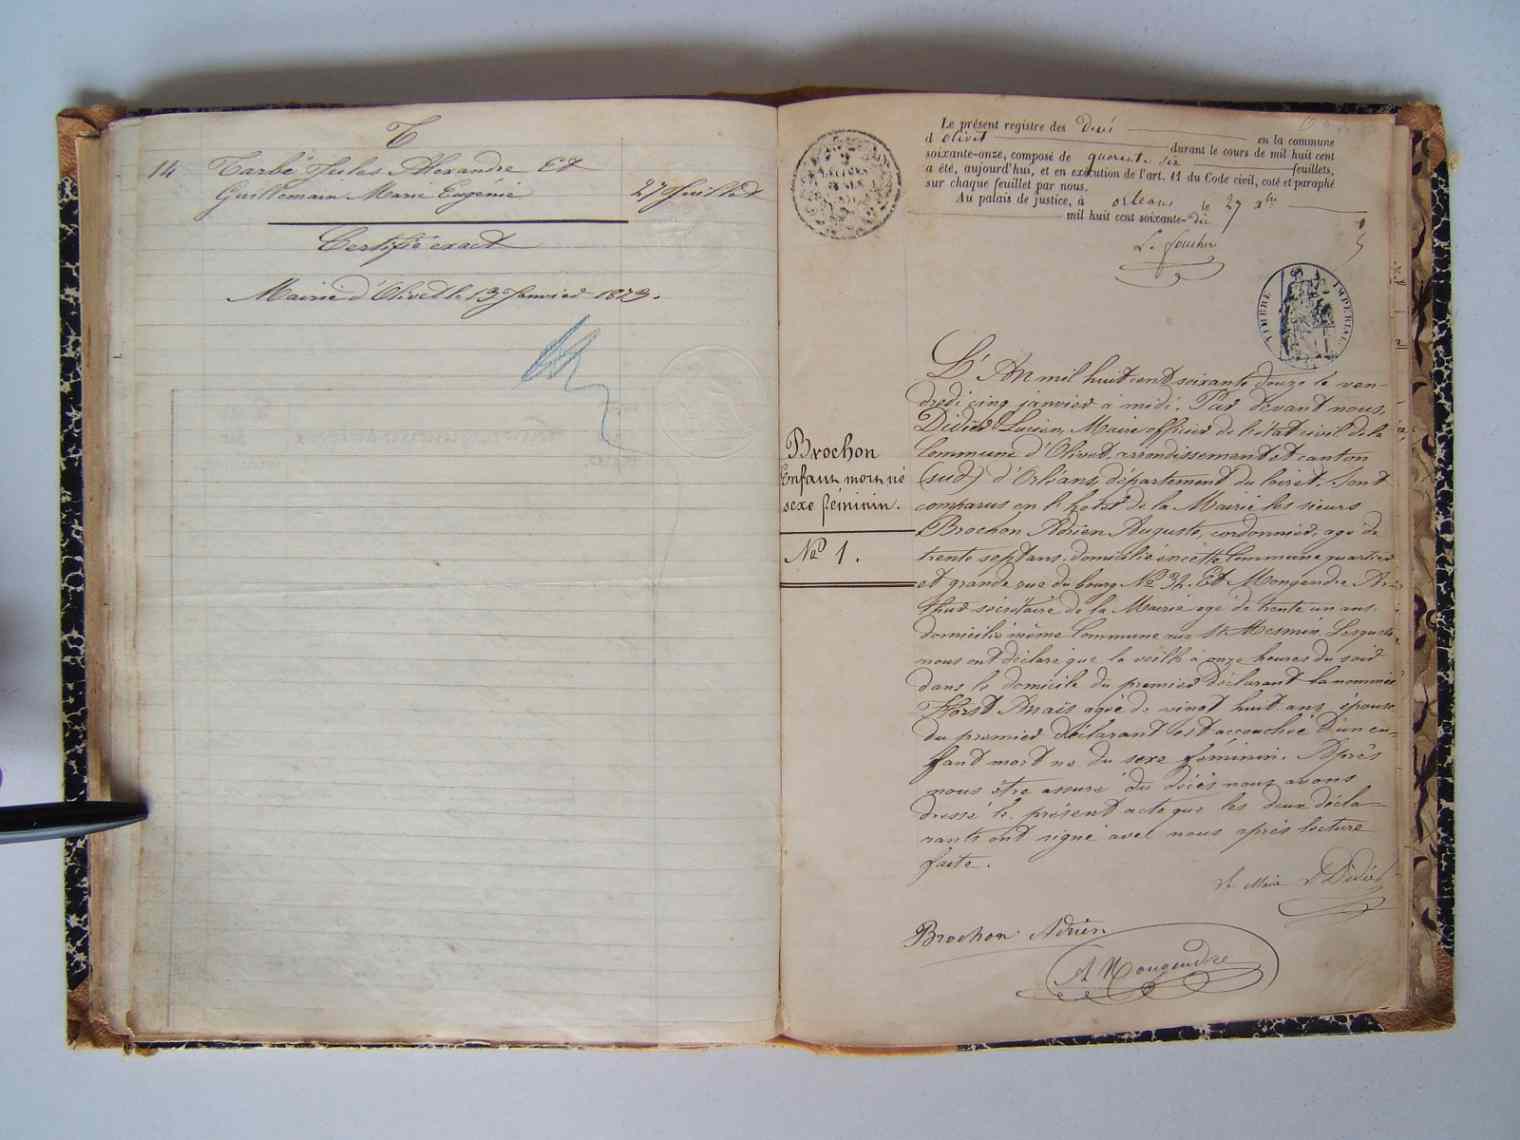 T
14 Tarbé Jules Alexandre Et
Guillemain Marie Eugenie 27 Juillet
Certifié exact
Mairie d'Olivet le 13 Janvier 1873.
Le présent registre des Décès en la commune
d Olivet durant le cours de mil huit cent
soixante-onze, composé de quarante six feuillets,
a été, aujourd'hui, et en exécution de l'art. 41 du Code civil, coté et paraphé
sur chaque feuillet par nous.
Au palais de justice, à orléans le 27 Xbre
mil huit cent soixante-dix
TIMBRE IMPERIAL
L'An mil huit cent soixante douze le ven-
dredi cinq janvier à midi. Par devant nous,
Didier Lucien, Maire officier de l'état civil de la
Commune d'Olivet, arrondissement et canton
(sud) d'Orléans, département du loiret. Sont
comparus en l'hotel de la Mairie les sieurs
Brochon Adrien Auguste, cordonnier, agé de
trente sept ans, domicilié en cette Commune quartier
et grande rue du bourg No 32. Et Mongendre Ar-
thur sécrétaire de la Mairie agé de trente un ans.
domicilié même Commune rue St Mesmin. Lesquels
nous ont déclaré que la veille à onze heures du soir
dans le domicile du premier déclarant la nommée
Horst Anaïs agée de vingt huit ans, épouse
du premier déclarant est accouchée d'un en-
fant mort né du sexe féminin. Après
nous être assuré du décès nous avons
dressé le présent acte que les deux décla-
rants ont signé avec nous après lecture
faite.
Le Maire L Didier
Brochon Adrien
A Mongendre
Brochon
Enfant mort né
sexe féminin.
No 1.